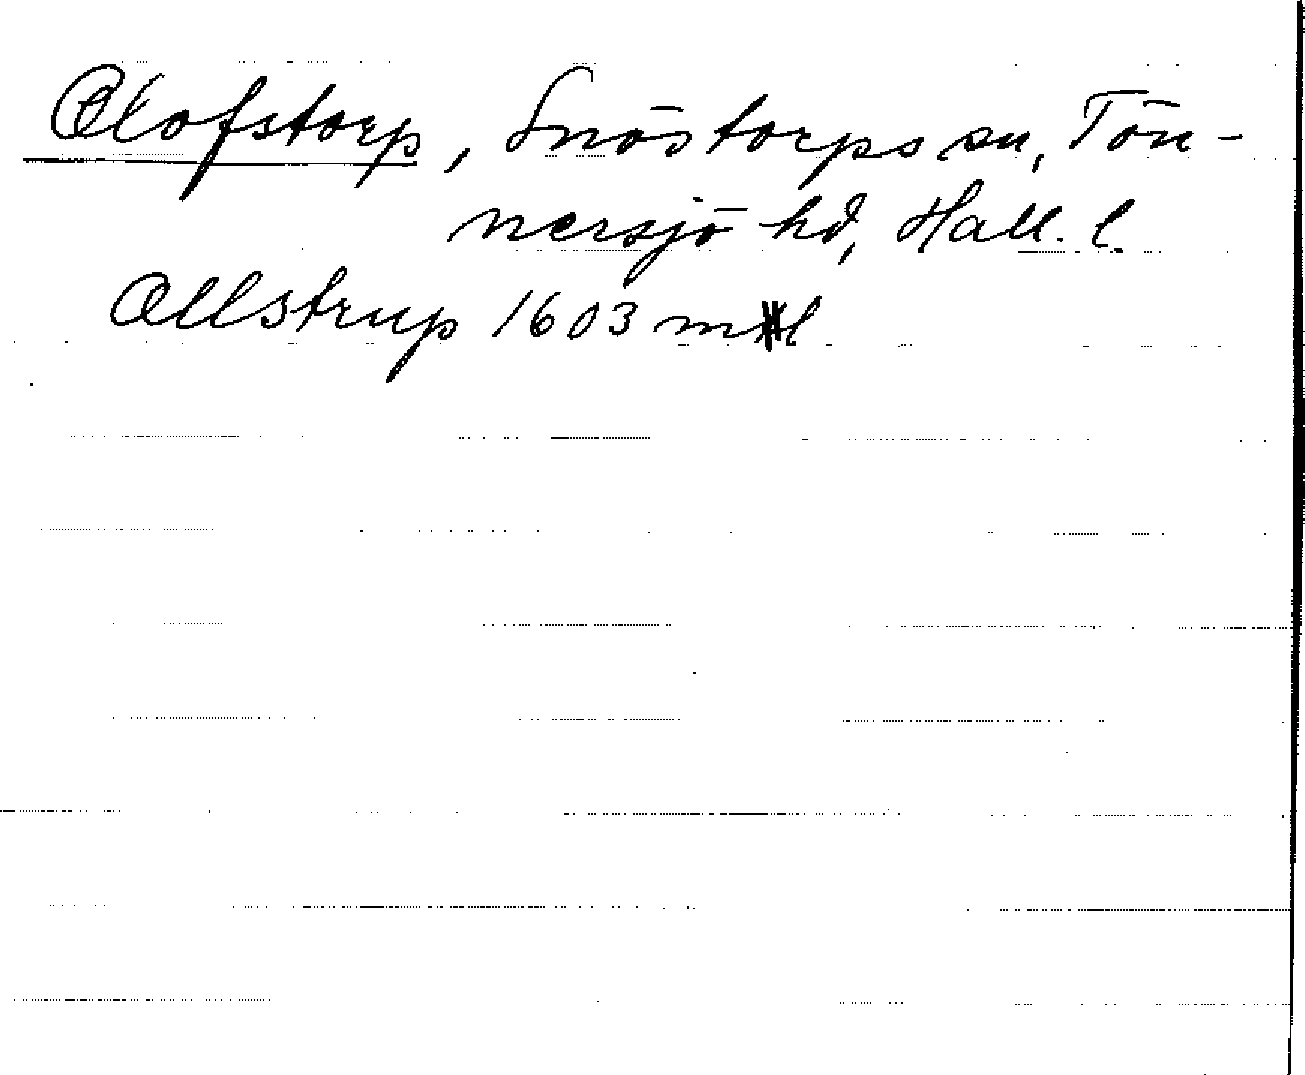 Olofstorp, Snöstorps sn, Tön-
nersjö hd, Hall. l.
Ollstrup 1603 ml